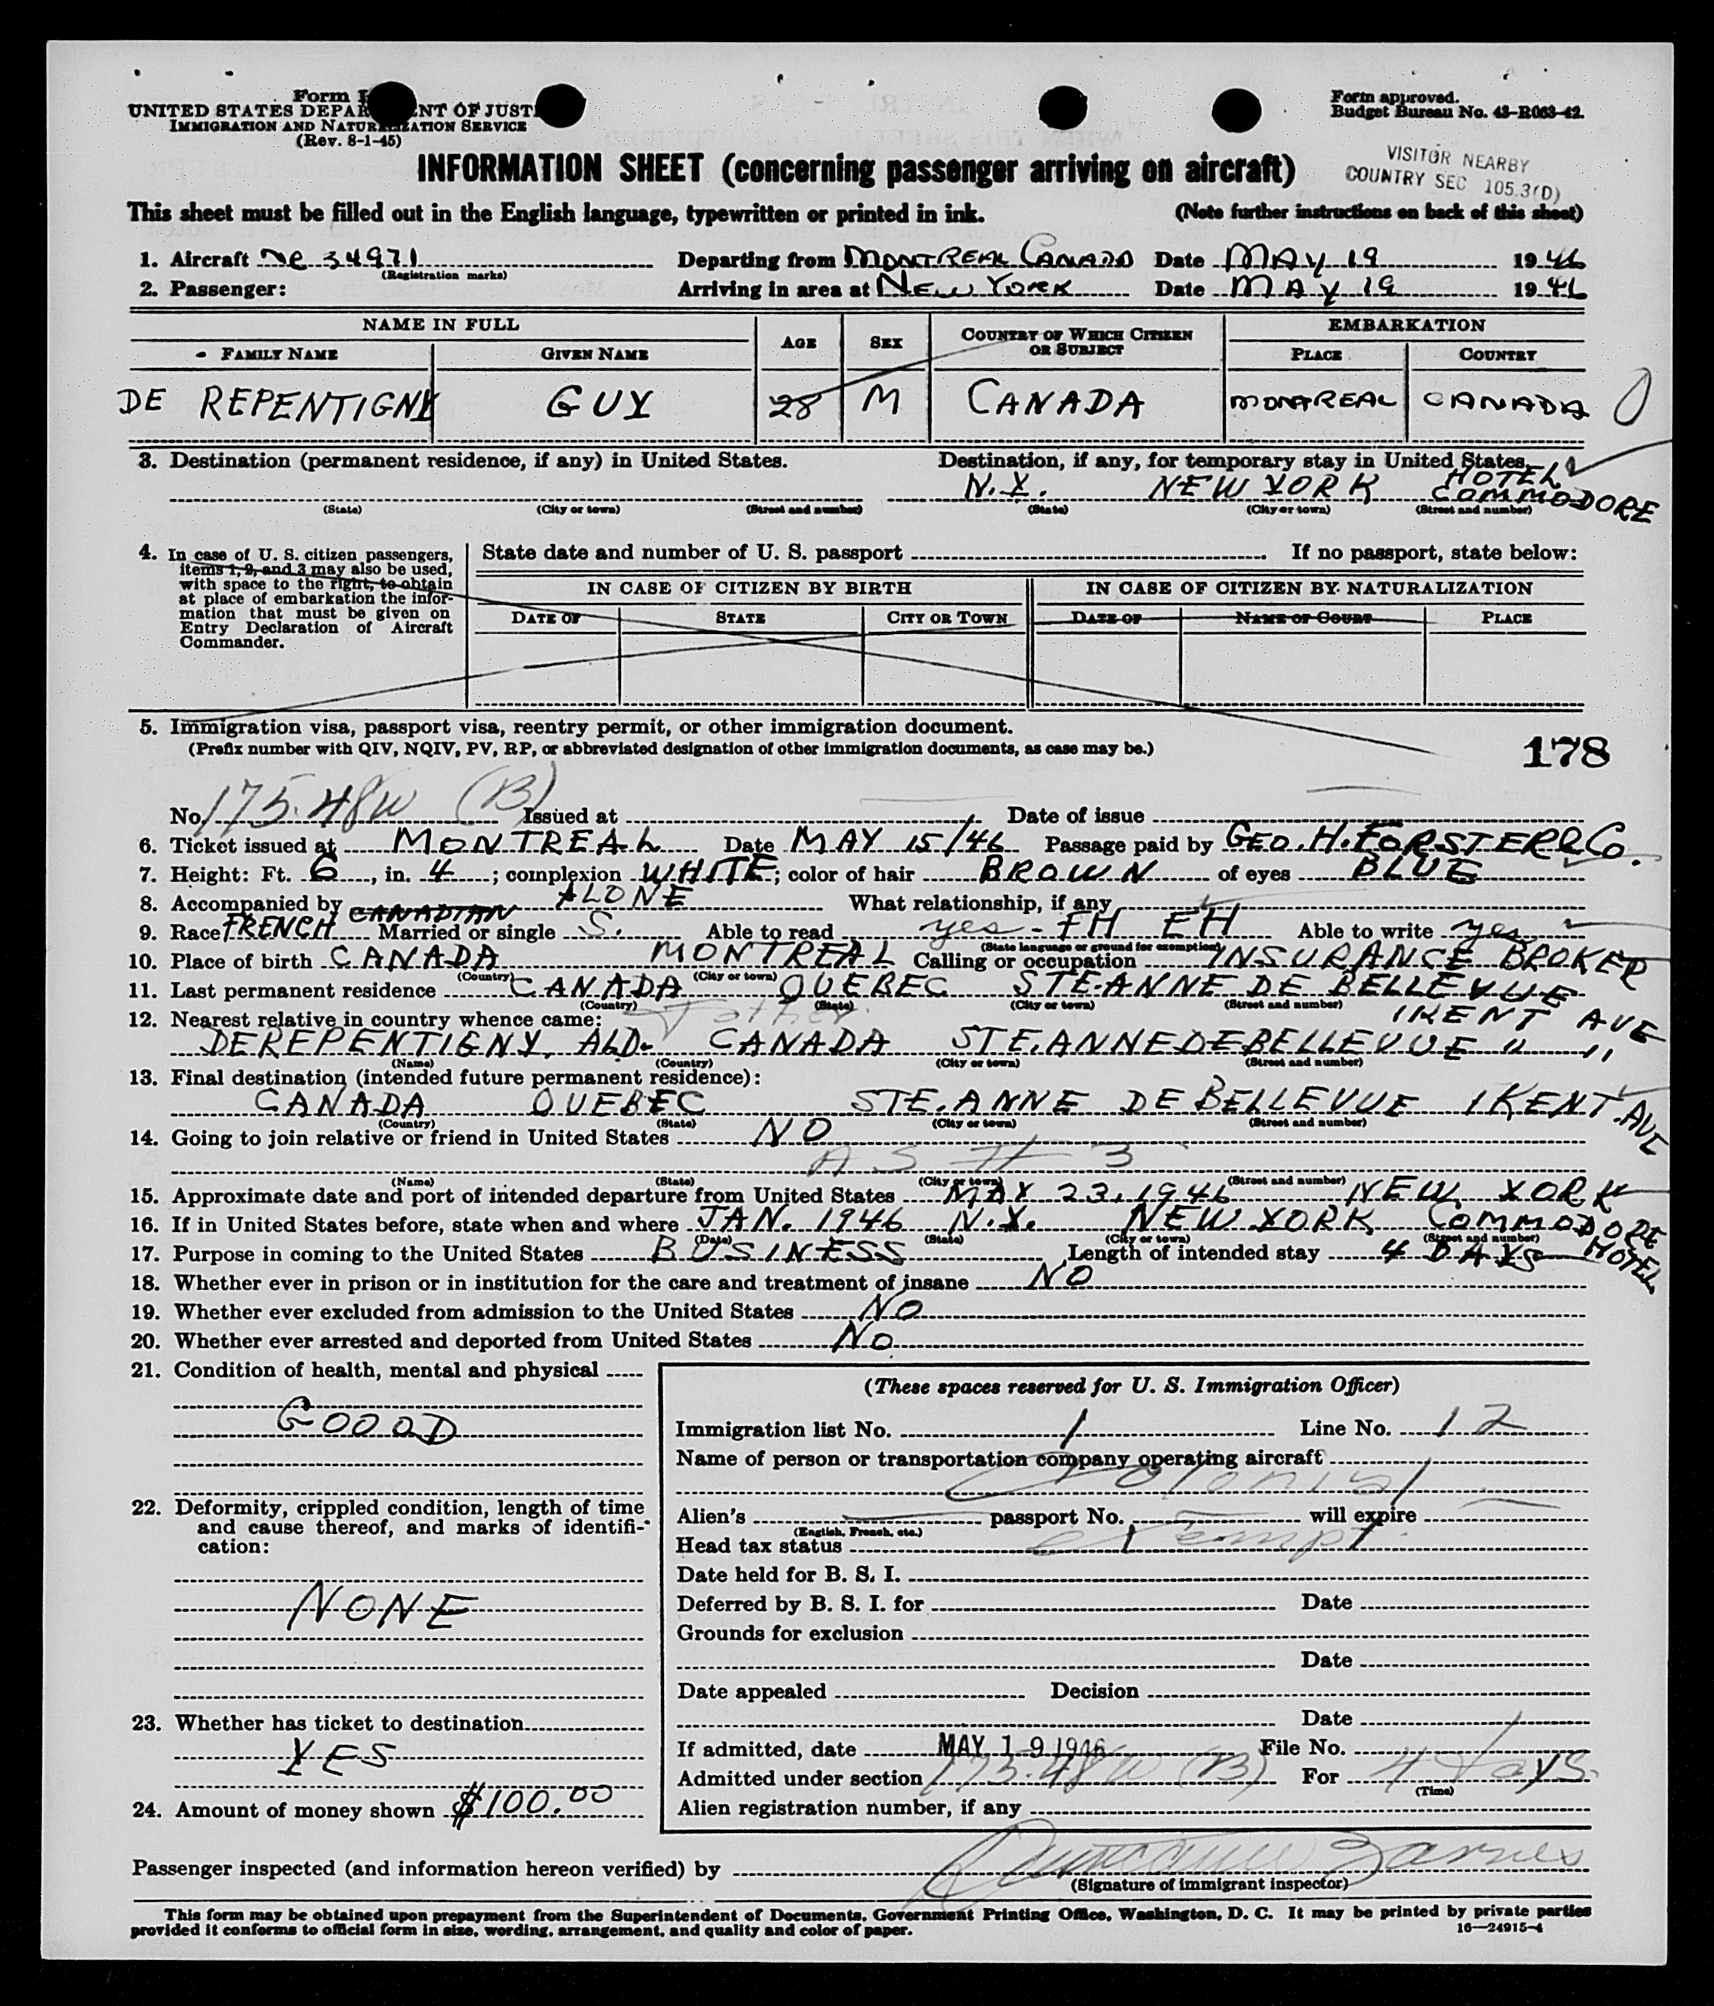 Form I
UNITED STATES DEPARTMENT OF JUSTICE
IMMIGRATION AND NATURALIZATION SERVICE
(Rev. 8-1-45)
Form approved.
Budget Bureau No. 43-R063-42.
INFORMATION SHEET (concerning passenger arriving on aircraft)
VISITOR NEARBY
COUNTRY SEC 105.3(D)
This sheet must be filled out in the English language, typewritten or printed in ink. (Note further instructions on back of this sheet)
1. Aircraft NC 34971 Departing from MONTREAL CANADA Date MAY 19 1946
(Registration marks)
2. Passenger: Arriving in area at NEW YORK Date MAY 19 1946
NAME IN FULL AGE SEX COUNTRY OF WHICH CITIZEN OR SUBJECT EMBARKATION
FAMILY NAME GIVEN NAME PLACE COUNTRY
DE REPENTIGNY GUY 28 M CANADA MONTREAL CANADA
3. Destination (permanent residence, if any) in United States. Destination, if any, for temporary stay in United States.
N.Y. NEW YORK HOTEL COMMODORE
(State) (City or town) (Street and number) (State) (City or town) (Street and number)
4. In case of U. S. citizen passengers, items 1, 2, and 3 may also be used, with space to the right, to obtain at place of embarkation the information that must be given on Entry Declaration of Aircraft Commander.
State date and number of U. S. passport . If no passport, state below:
IN CASE OF CITIZEN BY BIRTH IN CASE OF CITIZEN BY NATURALIZATION
DATE OF STATE CITY OR TOWN DATE OF NAME OF COURT PLACE
5. Immigration visa, passport visa, reentry permit, or other immigration document.
(Prefix number with QIV, NQIV, PV, RP, or abbreviated designation of other immigration documents, as case may be.)
178
No. 175.48W (B) Issued at Date of issue
6. Ticket issued at MONTREAL Date MAY 15/46 Passage paid by GEO. H. FORSTER & Co.
7. Height: Ft. 6, in. 4; complexion WHITE; color of hair BROWN of eyes BLUE
8. Accompanied by ALONE What relationship, if any
9. Race FRENCH CANADIAN Married or single S. Able to read yes - FH EH Able to write yes
(State language or ground for exemption)
10. Place of birth CANADA MONTREAL Calling or occupation INSURANCE BROKER
(Country) (City or town)
11. Last permanent residence CANADA QUEBEC STE. ANNE DE BELLEVUE 1 KENT AVE
(Country) (State) (City or town) (Street and number)
12. Nearest relative in country whence came: Father
DEREPENTIGNY, ALD. CANADA STE. ANNE DE BELLEVUE " "
(Name) (Country) (City or town) (Street and number)
13. Final destination (intended future permanent residence):
CANADA QUEBEC STE. ANNE DE BELLEVUE 1 KENT. AVE
(Country) (State) (City or town) (Street and number)
14. Going to join relative or friend in United States NO
AS # 3
(Name) (State) (City or town) (Street and number)
15. Approximate date and port of intended departure from United States MAY 23, 1946 NEW YORK
16. If in United States before, state when and where JAN. 1946 N.Y. NEW YORK COMMODORE HOTEL
(Date) (State) (City or town) (Street and number)
17. Purpose in coming to the United States BUSINESS Length of intended stay 4 DAYS
18. Whether ever in prison or in institution for the care and treatment of insane NO
19. Whether ever excluded from admission to the United States NO
20. Whether ever arrested and deported from United States NO
21. Condition of health, mental and physical
GOOD
22. Deformity, crippled condition, length of time and cause thereof, and marks of identification:
NONE
23. Whether has ticket to destination
YES
24. Amount of money shown $100.00
(These spaces reserved for U. S. Immigration Officer)
Immigration list No. 1 Line No. 12
Name of person or transportation company operating aircraft
Colonial
Alien's passport No. will expire
(English, French, etc.)
Head tax status exempt
Date held for B. S. I.
Deferred by B. S. I. for Date
Grounds for exclusion
Date
Date appealed Decision
Date
If admitted, date MAY 19 1946 File No.
Admitted under section 175.48W (B) For 4 days.
(Time)
Alien registration number, if any
Passenger inspected (and information hereon verified) by
(Signature of immigrant inspector)
This form may be obtained upon prepayment from the Superintendent of Documents, Government Printing Office, Washington, D. C. It may be printed by private parties
provided it conforms to official form in size, wording, arrangement, and quality and color of paper. 16—24915-4